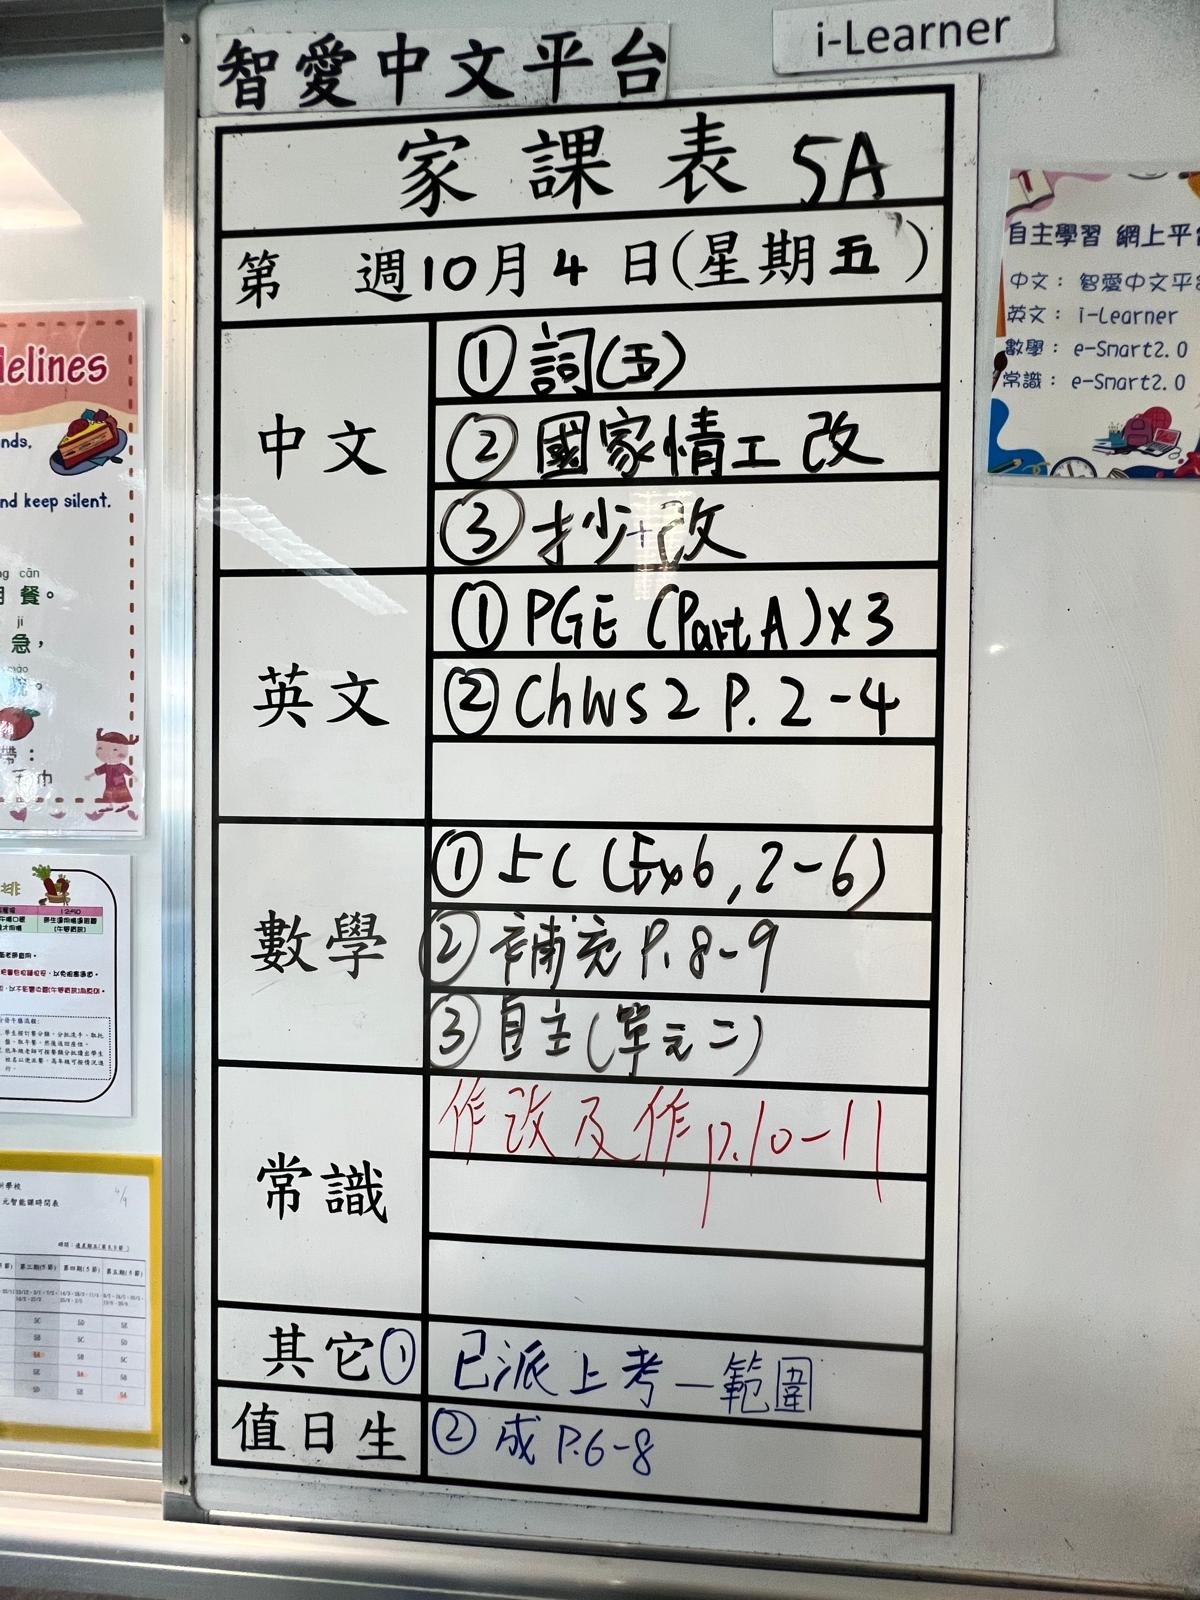 智愛中文平台
i-Learner
家課表 5A
第 週10月4日(星期五)
中文
①詞(五)
②國家情工改
③抄+改
英文
①PGE (Part A)x3
②ChWS2 P.2-4
數學
①上C (Ex6, 2-6)
②補充 P.8-9
③自主(單元二)
常識
作改及作 p.10-11
其它① 已派上考一範圍
值日生 ② 成 P.6-8
自主學習 網上平台
中文: 智愛中文平台
英文: i-Learner
數學: e-Smart2.0
常識: e-Smart2.0
delines
nds,
nd keep silent.
ng cān
用 餐。
jí
急,
帶:
手巾
排
元智能課時間表